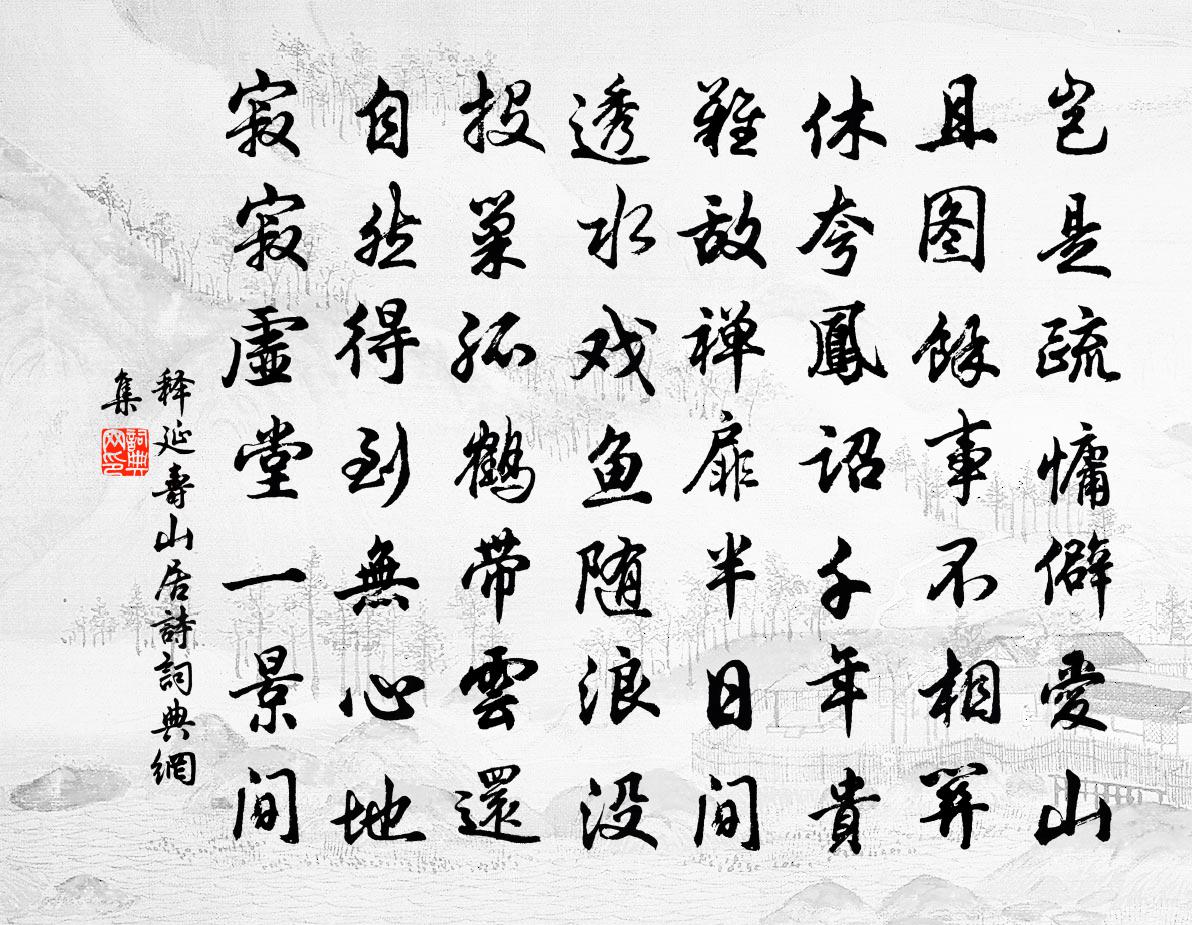 岂是疏慵僻爱山
且图馀事不相关
休夸凤诏千年贵
难敌禅扉半日间
透水戏鱼随浪没
投巢孤鹤带云还
自然得到無心地
寂寂虚堂一景间
释延寿山居詩詞典網
集
詞典网印